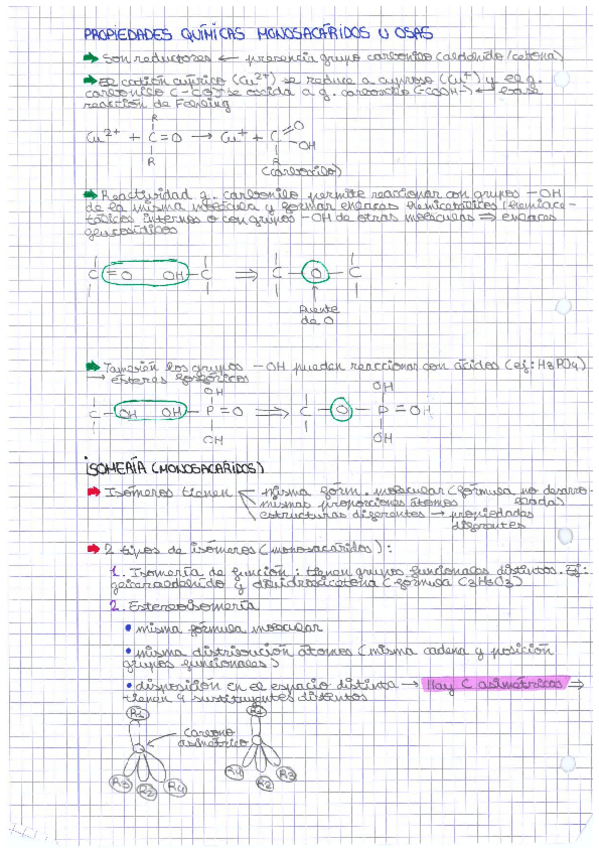 PROPIEDADES QUÍMICAS MONOSACÁRIDOS U OSAS
Son reductores ← presencia grupo carbonilo (aldehído/cetona)
El catión cúprico (Cu²⁺) se reduce a cuproso (Cu⁺) y el g.
carbonilo C-CO se oxida a g. carboxilo (-COOH) ← base
reacción de Fehling
R
Cu²⁺ + C=O → Cu⁺ + C=O
-OH
R
(carboxilo)
Reactividad g. carbonilo permite reaccionar con grupos -OH
de la misma molécula y formar enlaces hemicetálicos/hemiace-
tálicos internos o con grupos -OH de otras moléculas ⇒ enlaces
glucosídicos
C=O OH-C ⇒ C-O-C
Puente
de O
También los grupos -OH pueden reaccionar con ácidos (ej: H3PO4)
→ ésteres fosfóricos
OH OH
C-OH OH-P=O ⇒ C-O-P=OH
OH OH
ISOMERÍA (MONOSACÁRIDOS)
Isómeros tienen misma fórm. molecular (fórmula no desarro-
mismas proporciones átomos llada)
estructuras diferentes → propiedades
diferentes
2 tipos de isómeros (monosacáridos):
1. Isomería de función: tienen grupos funcionales distintos. Ej:
gliceraldehído y dihidroxicetona (fórmula C3H6O3)
2. Estereoisomería
• misma fórmula molecular
• misma distribución átomos (misma cadena y posición
grupos funcionales)
• disposición en el espacio distinta → Hay C asimétricos ⇒
tienen 4 sustituyentes distintos
R1 R1
carbono
asimétrico
R3 R2 R4 R4 R2 R3